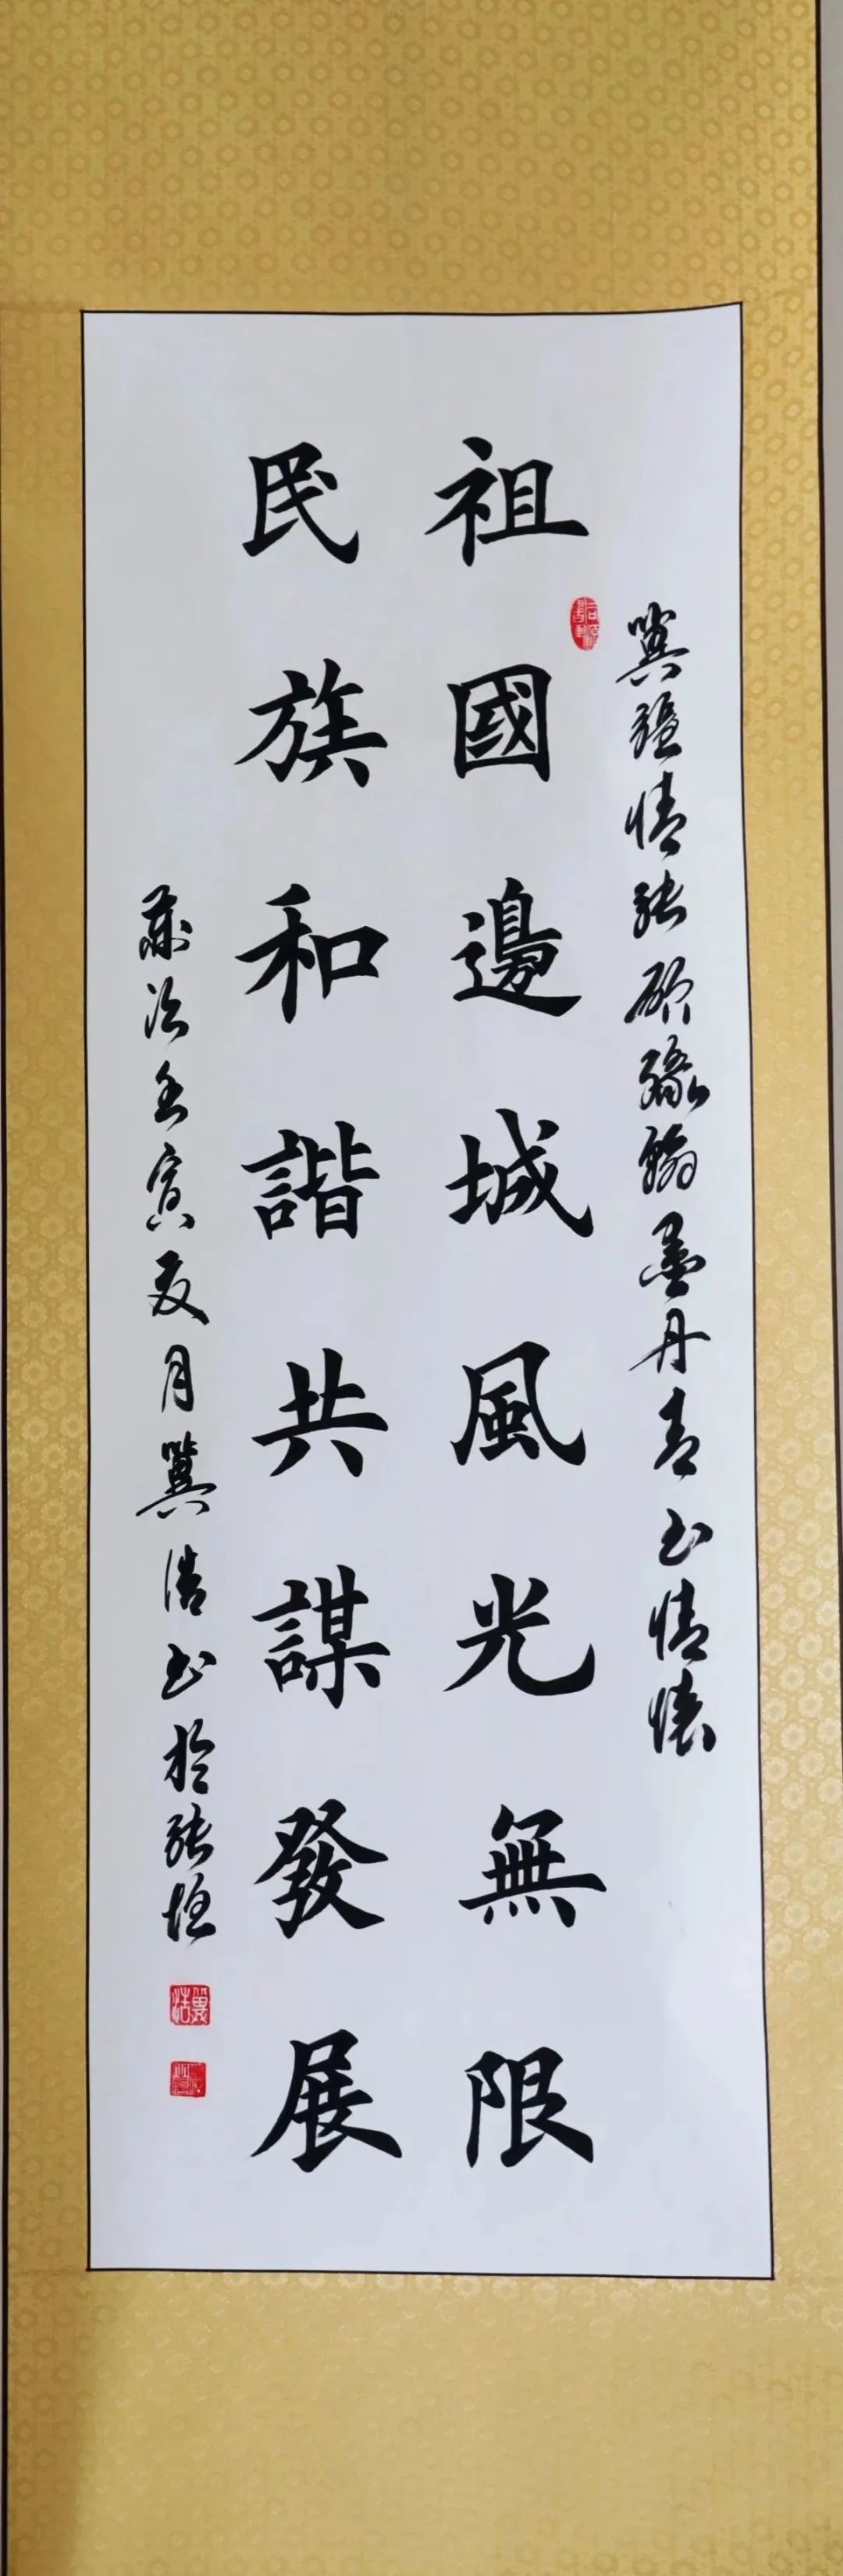 冀疆情張碩緣翰墨丹青書情懷
祖國邊城風光無限
民族和諧共謀發展
歲次壬寅夏月冀浩書於張垣